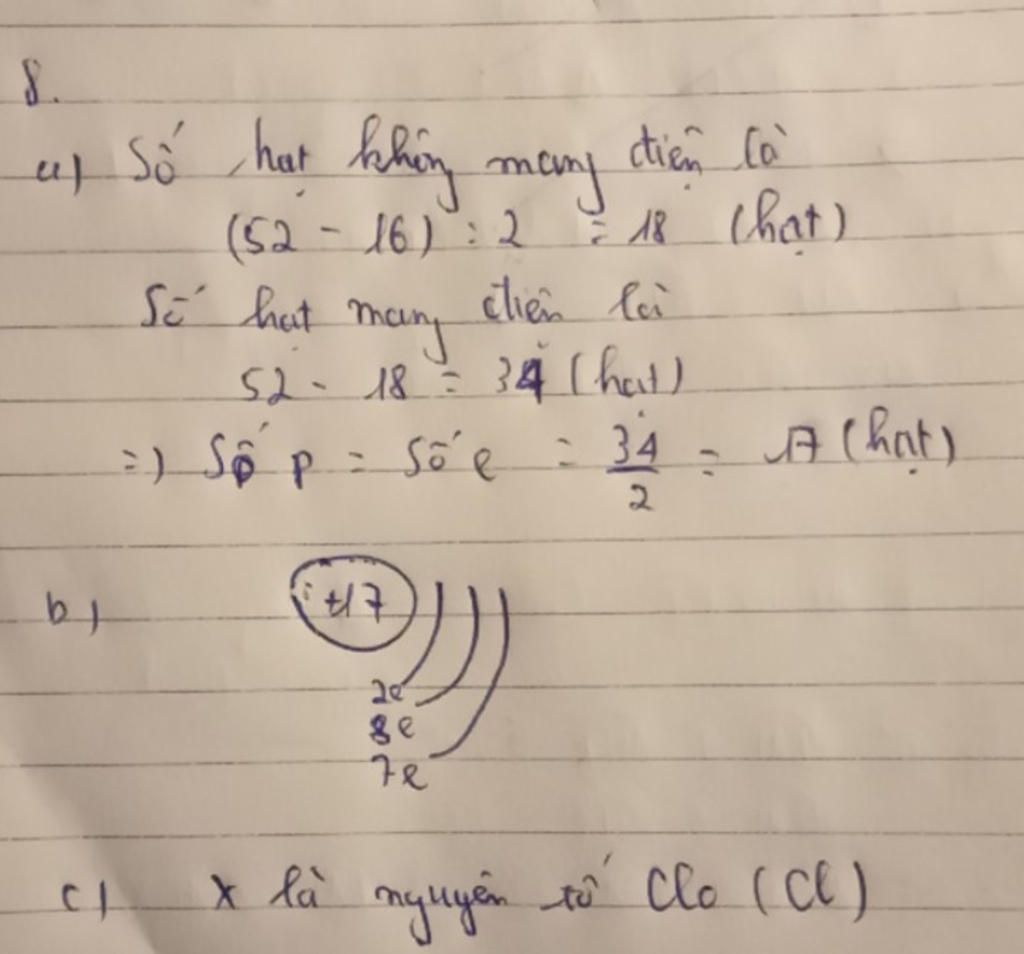 8.
a) Số hạt không mang điện là
(52 - 16) : 2 = 18 (hạt)
Số hạt mang điện là
52 - 18 = 34 (hạt)
=) Số p = số e = 34/2 = 17 (hạt)
b) +17
2e
8e
7e
c) X là nguyên tố Clo (Cl)